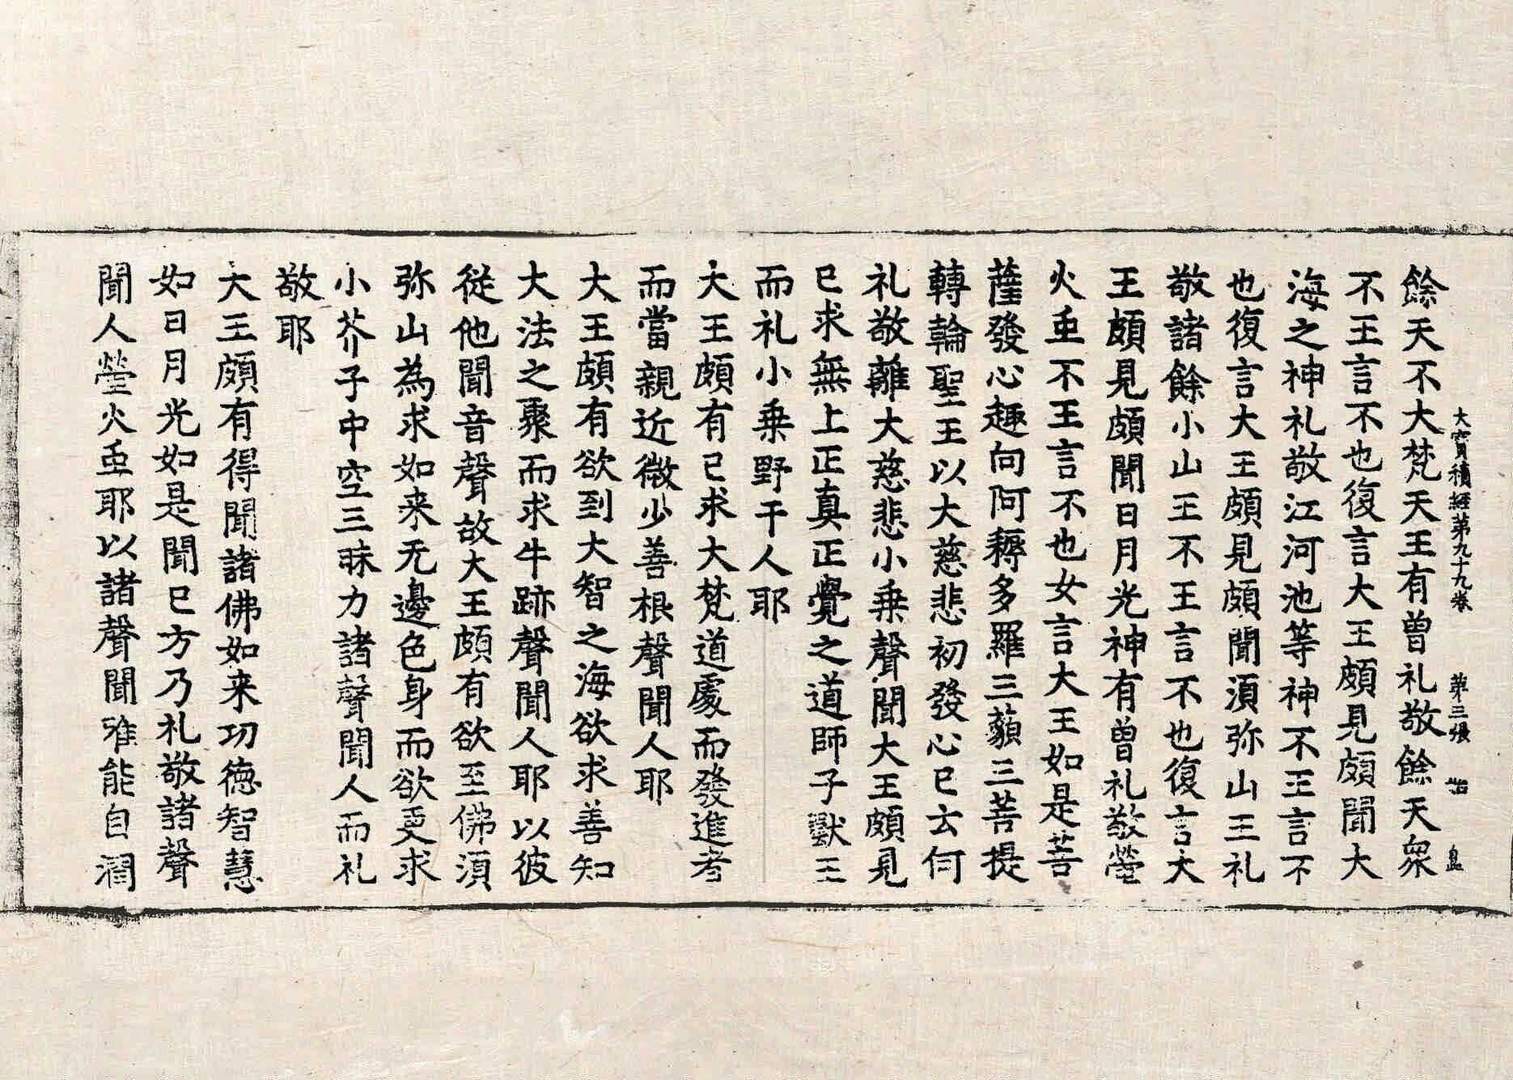 大寶積經第九十九卷 第三張 始
餘天不大梵天王有曾礼敬餘天衆
不王言不也復言大王頗見頗聞大
海之神礼敬江河池等神不王言不
也復言大王頗見頗聞湏弥山王礼
敬諸餘小山王不王言不也復言大
王頗見頗聞日月光神有曾礼敬螢
火虫不王言不也女言大王如是菩
薩發心趣向阿耨多羅三藐三菩提
轉輪聖王以大慈悲初發心已云何
礼敬離大慈悲小乗聲聞大王頗見
已求無上正真正覺之道師子獸王
而礼小乗野干人耶
大王頗有已求大梵道處而發進考
而當親近微少善根聲聞人耶
大王頗有欲到大智之海欲求善知
大法之聚而求牛跡聲聞人耶以彼
従他聞音聲故大王頗有欲至佛湏
弥山為求如来无邊色身而欲更求
小芥子中空三昧力諸聲聞人而礼
敬耶
大王頗有得聞諸佛如来功徳智慧
如日月光如是聞已方乃礼敬諸聲
聞人螢火虫耶以諸聲聞唯能自潤